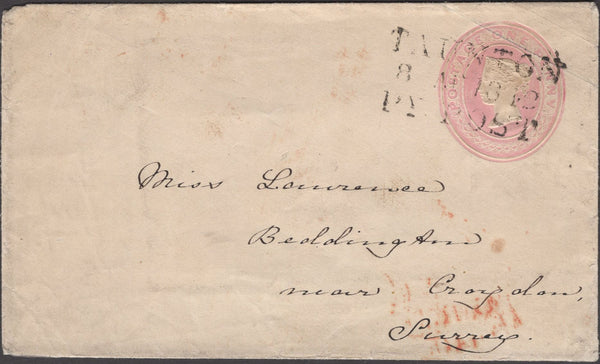 TAUNTON
PY POST
POSTAGE ONE PENNY
Miss Lawrence
Beddington
near Croydon,
Surrey.